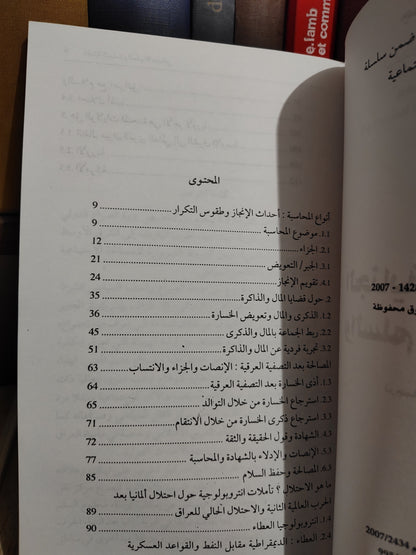 e.lamb
et comm
ضمن سلسلة
تماعية
المحتوى
أنواع المحاسبة : أحداث الإنجاز وطقوس التكرار ............ 9
1.1 موضوع المحاسبة ............ 9
2.1 الجزاء ............ 12
3.1 الجبر/ التعويض ............ 21
4.1 تقويم الإنجاز ............ 24
2. حول قضايا المال والذاكرة ............ 35
1.2 الذكرى والمال وتعويض الخسارة ............ 36
2.2 ربط الجماعة بالمال والذكرى ............ 45
3.2 تجربة فردية عن المال والذاكرة ............ 51
المصالحة بعد التصفية العرقية : الإنصات والجزاء والانتساب ............ 63
1.3 أذى الخسارة بعد التصفية العرقية ............ 64
2.3 استرجاع الخسارة من خلال التوالد ............ 65
3.3 استرجاع ذكرى الخسارة من خلال الانتقام ............ 71
4.3 الشهادة وقول الحقيقة والثقة ............ 72
5.3 الإنصات والإدلاء بالشهادة والمحاسبة ............ 77
6.3 المصالحة وحفظ السلام ............ 85
ما هو الاحتلال ؟ تأملات انتروبولوجية حول احتلال ألمانيا بعد
الحرب العالمية الثانية والاحتلال الحالي للعراق ............ 89
1.4 انتروبولوجيا العطاء ............ 90
2.4 العطاء : الديمقراطية مقابل النفط والقواعد العسكرية
2007 - 142
وق محفوظة
2007/2434